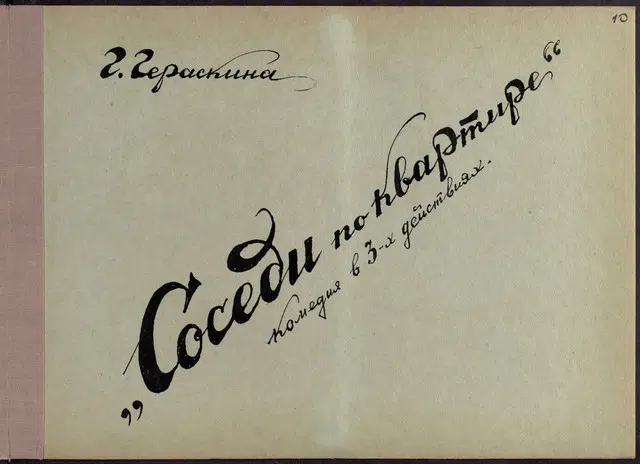 10
Г. Гераскина
„Соседи по квартире“
комедия в 3-х действиях.